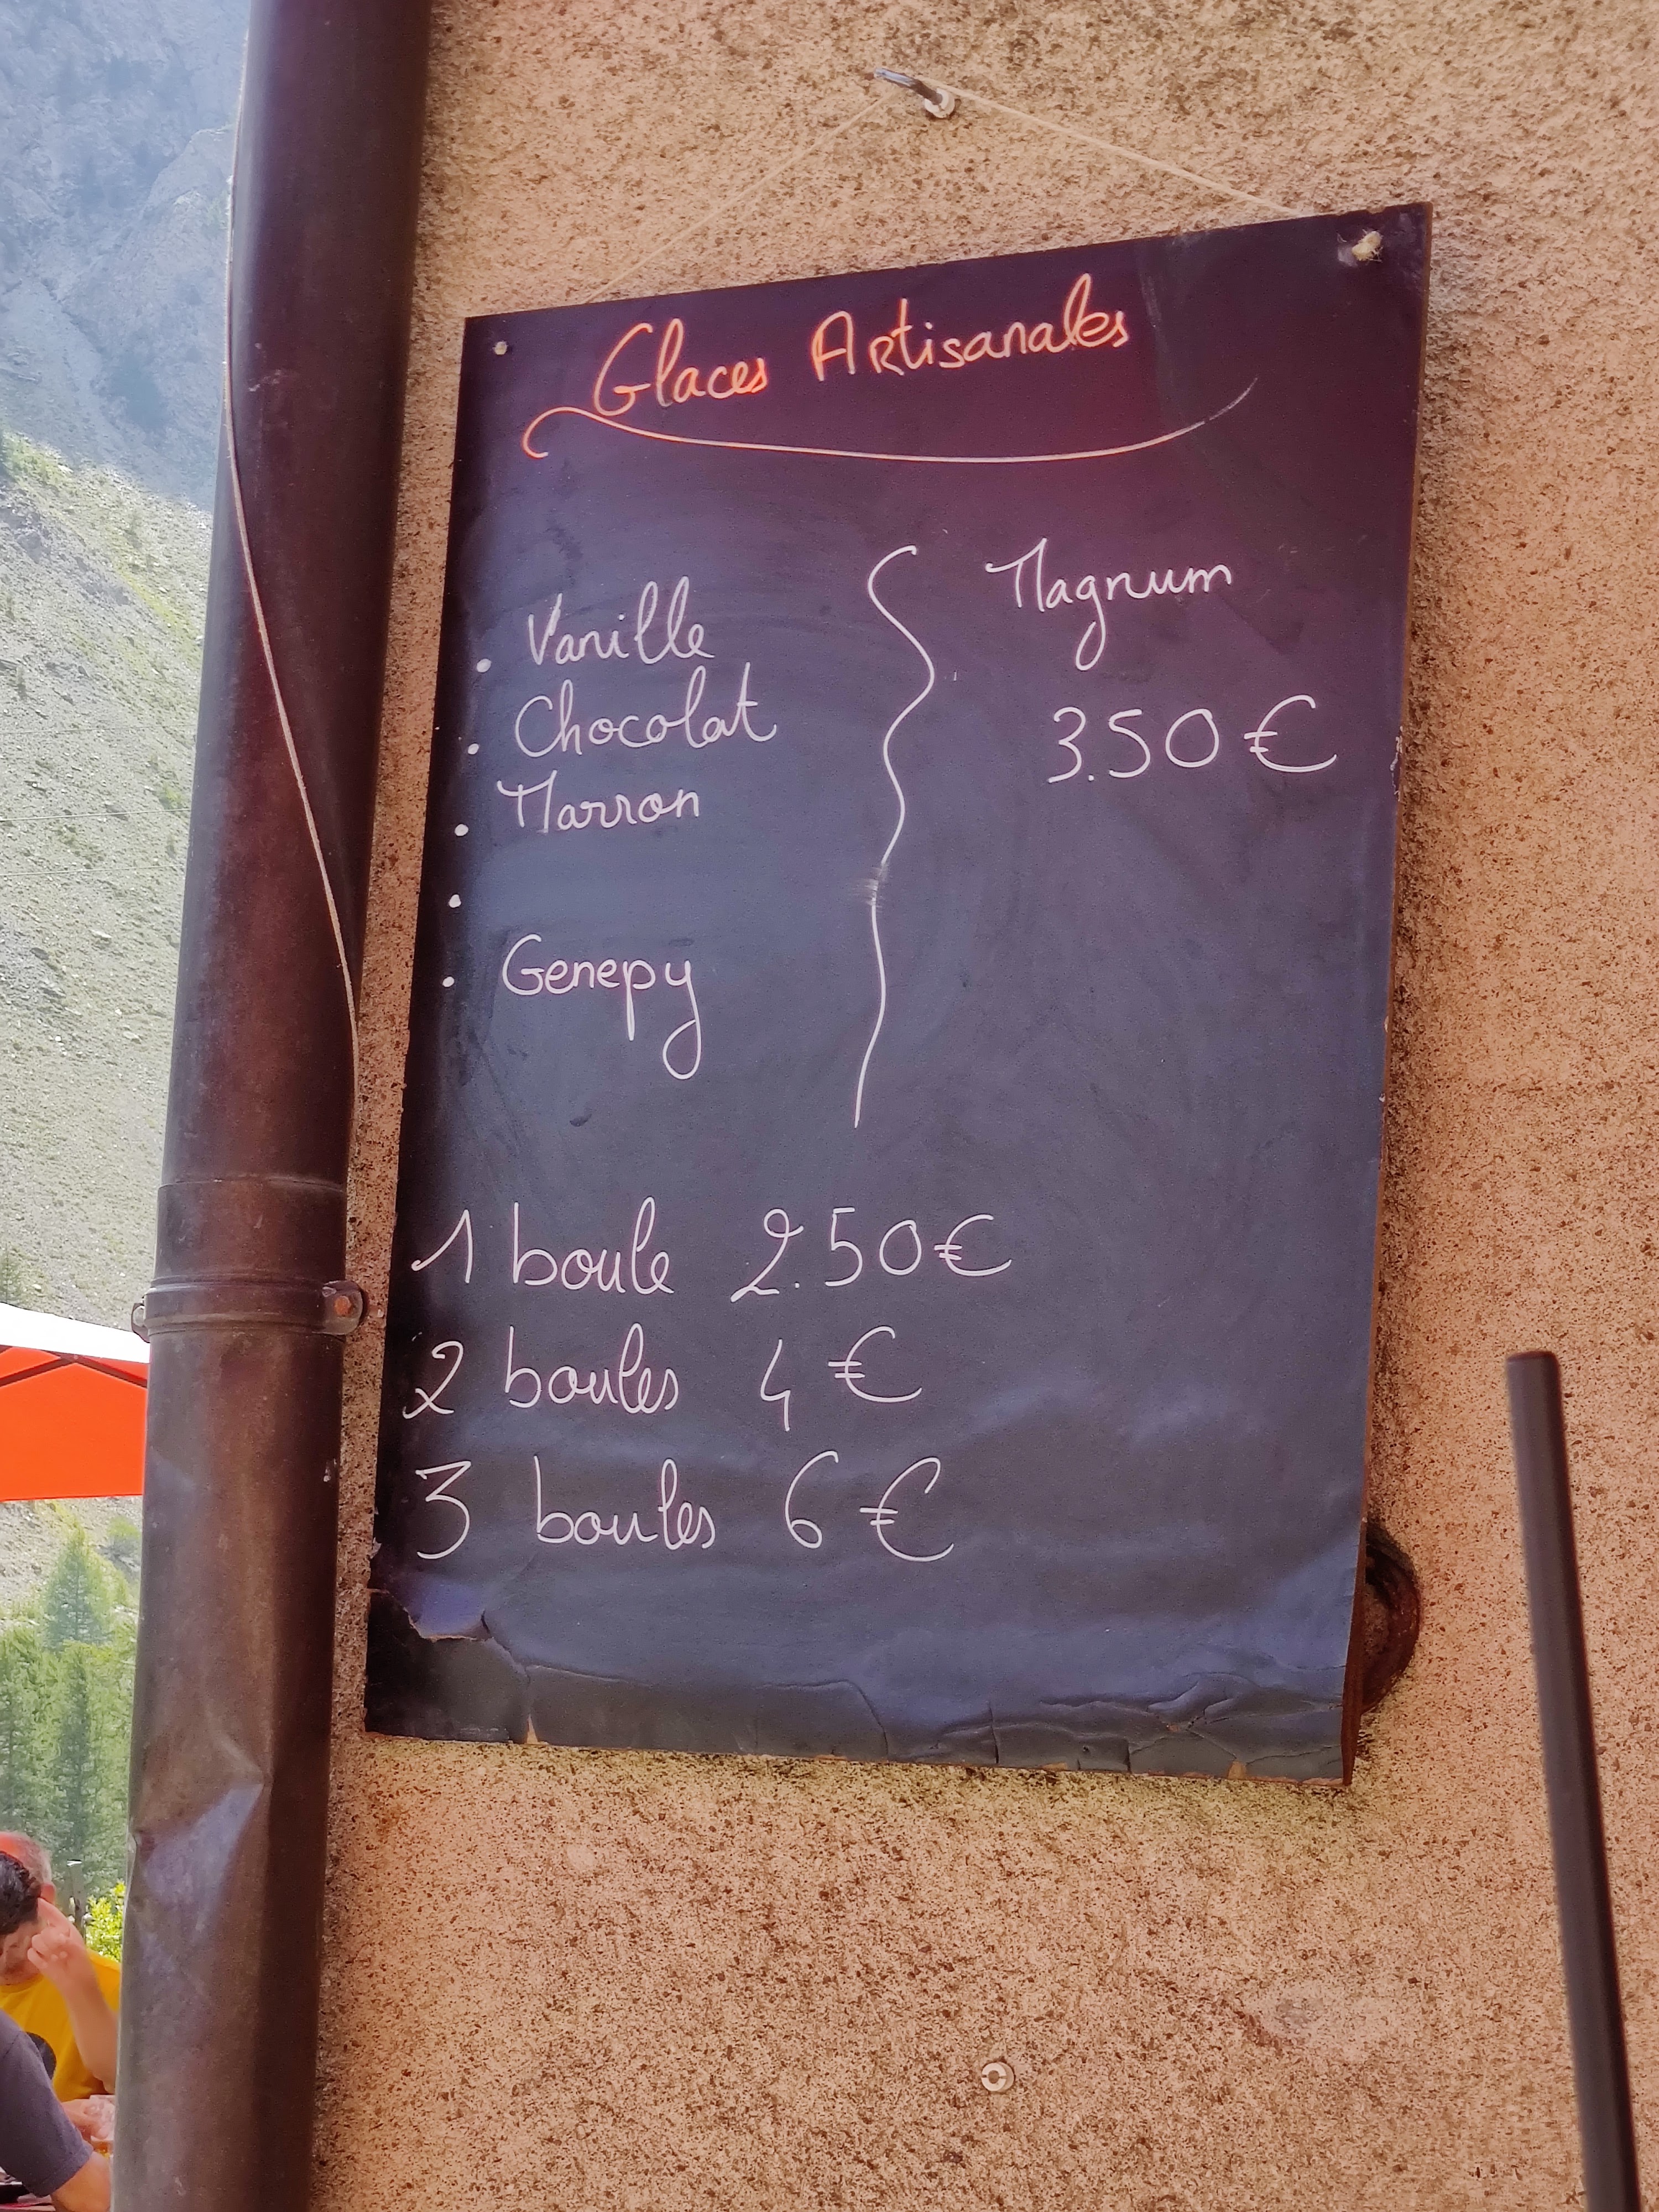 Glaces Artisanales
. Vanille
. Chocolat
. Marron
.
. Genepy
Magnum
3.50 €
1 boule 2.50 €
2 boules 4 €
3 boules 6 €